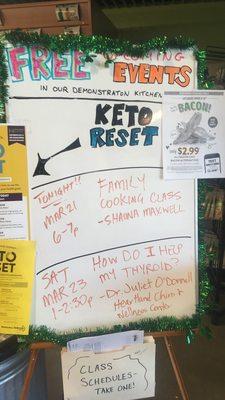 FREE COMING EVENTS
IN OUR DEMONSTRATON KITCHEN
KETO
RESET
BACON!
$2.99
TONIGHT!!
MAR 21
6-7p
FAMILY
COOKING CLASS
-SHAUNA MAXWELL
SAT
MAR 23
1-2:30p
HOW DO I HELP
MY THYROID?
-Dr. Juliet O'Donnell
Heartland Chiro &
Wellness Center
CLASS
SCHEDULES-
TAKE ONE!